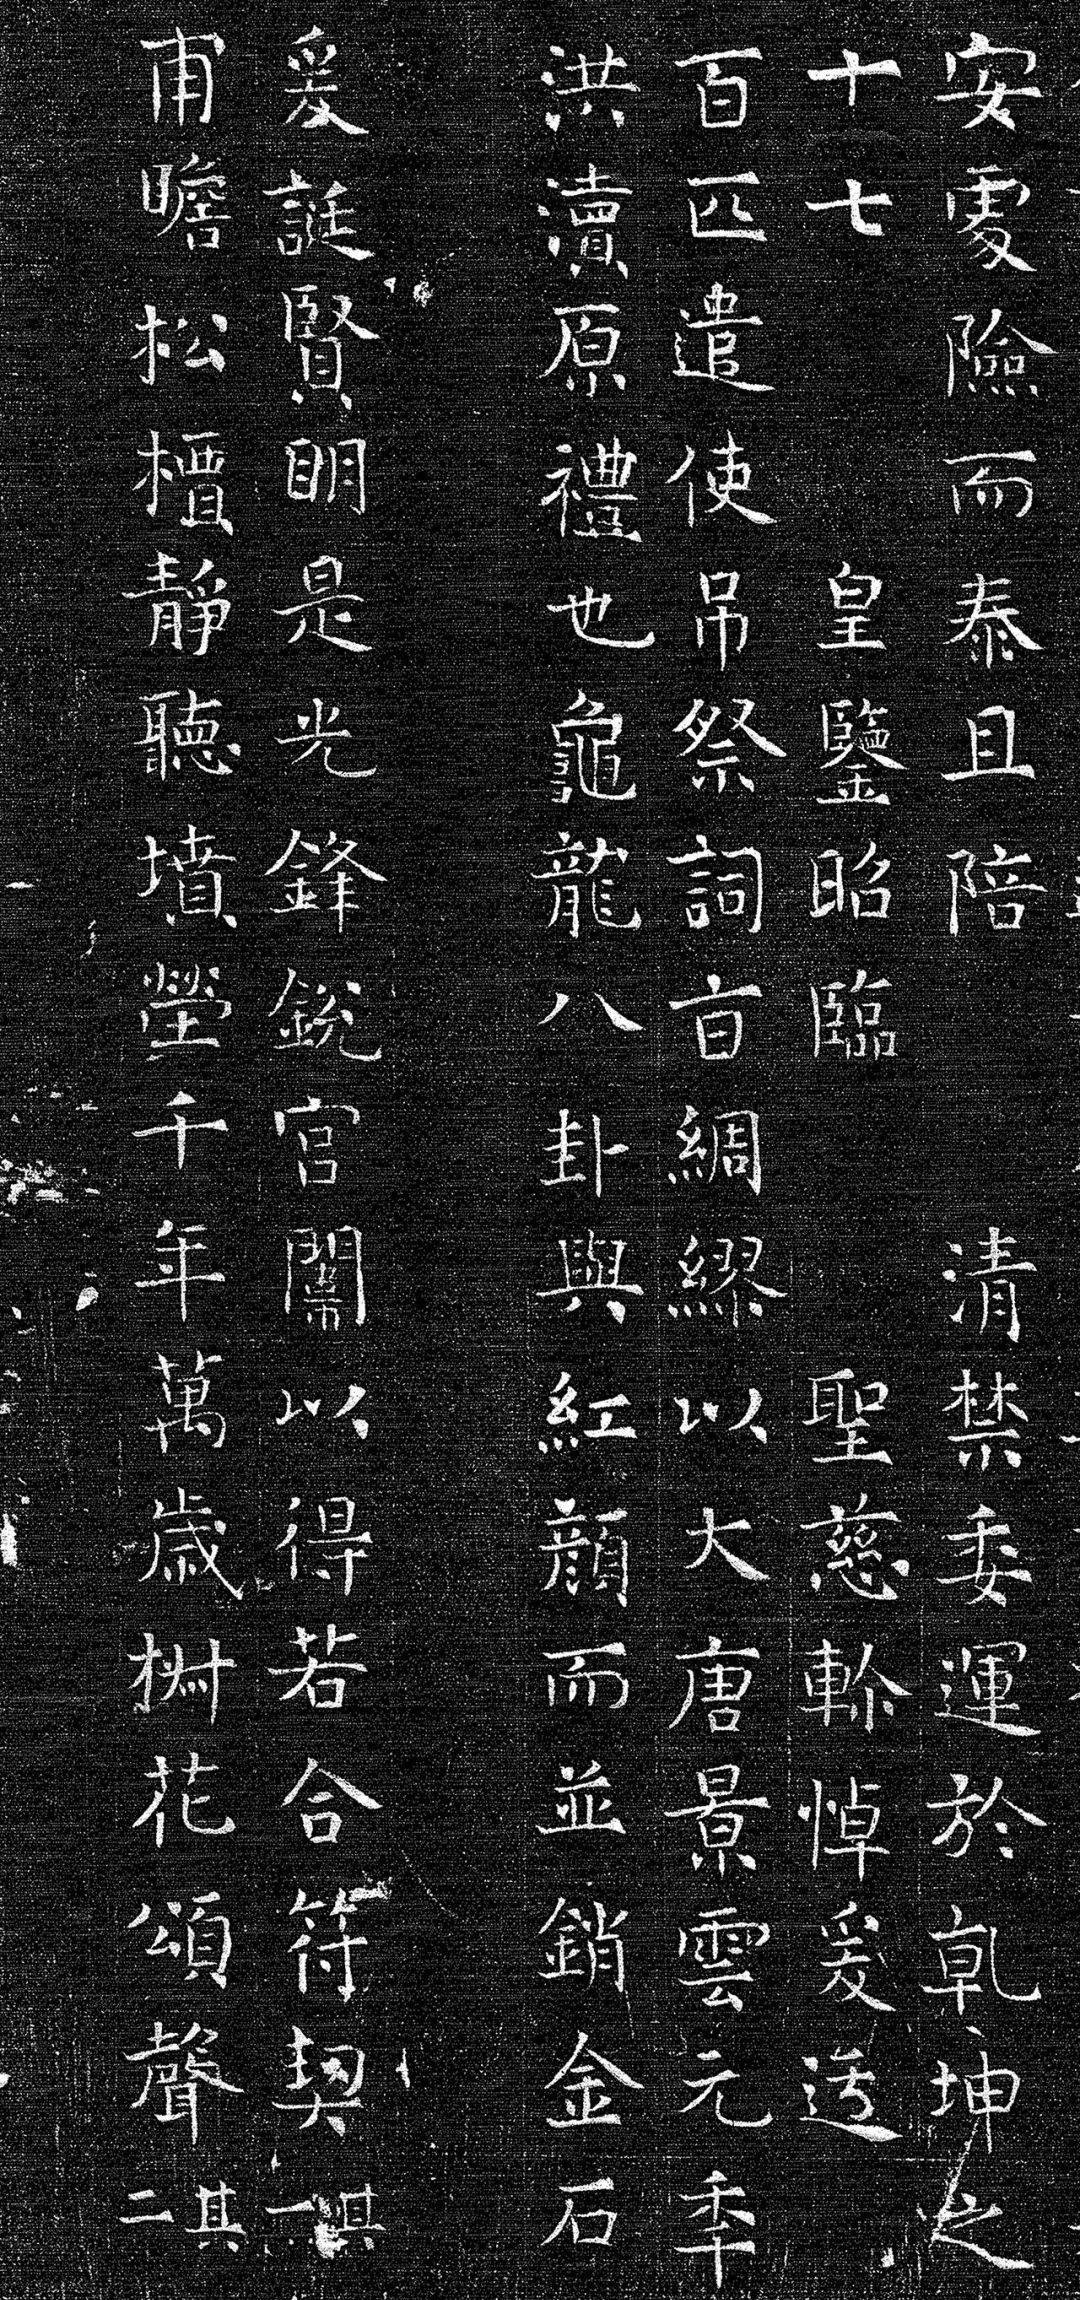 安處險而泰且陪 清禁委運於乹坤之
十七 皇鑒昭臨 聖慈軫悼爰送
百匹遣使吊祭詞旨綢繆以大唐景雲元年
洪瀆原禮也龜龍八卦與紅顏而並銷金石
爰誕賢眀是光鋒銳宮闈以得若合符契其一
甫瞻松檟靜聽墳塋千年萬歲椒花頌聲其二